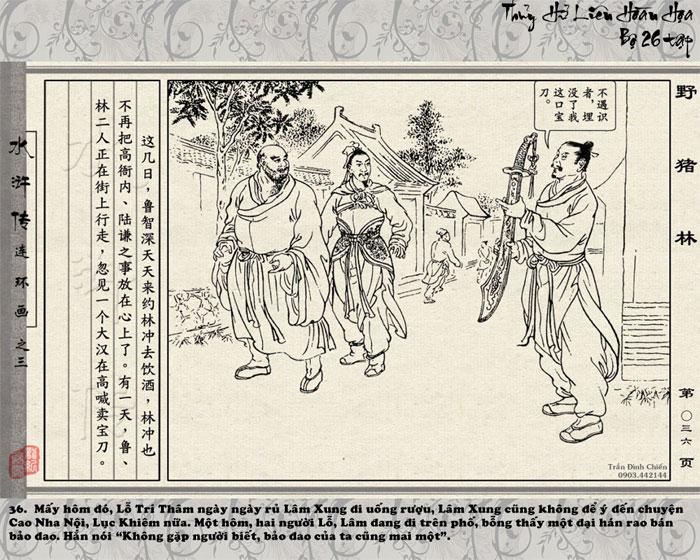 Thủy Hử Liên Hoàn Họa
Bộ 26 tập
野猪林
第〇三六页
不遇识
者，埋
没了我
这口宝
刀。
这几日，鲁智深天天来约林冲去饮酒，林冲也
不再把高衙内、陆谦之事放在心上了。有一天，鲁、
林二人正在街上行走，忽见一个大汉在高喊卖宝刀。
水浒传连环画之三
Trần Đình Chiến
0903.442144
36. Mấy hôm đó, Lỗ Trí Thâm ngày ngày rủ Lâm Xung đi uống rượu, Lâm Xung cũng không để ý đến chuyện
Cao Nha Nội, Lục Khiêm nữa. Một hôm, hai người Lỗ, Lâm đang đi trên phố, bỗng thấy một đại hán rao bán
bảo đao. Hắn nói “Không gặp người biết, bảo đao của ta cũng mai một”.